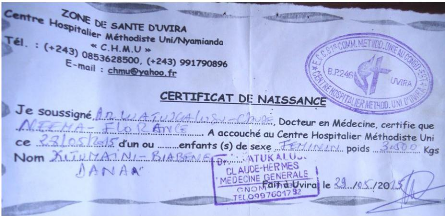 ZONE DE SANTE D'UVIRA
Centre Hospitalier Méthodiste Uni/Nyamianda
« C.H.M.U »
Tél. : (+243) 0853628500, (+243) 991790896
E-mail : chmu@yahoo.fr
B.P.246 UVIRA
CERTIFICAT DE NAISSANCE
Je soussigné, Docteur en Médecine, certifie que
NEEMA - FLORANCE A accouché au Centre Hospitalier Méthodiste Uni
ce 23/05/2015 d'un ou enfants (s) de sexe FEMININ poids 3.500 Kgs
Nom BIABENE
DANAA
CLAUDE-HERMES
MEDECINE GENERALE
Fait à Uvira, le 29/05/2015